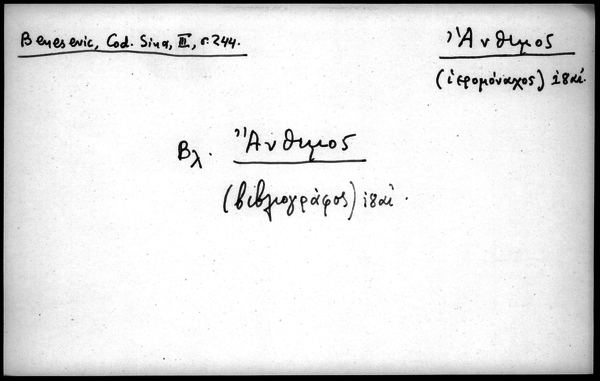 Benesevic, Cod. Sina, III, σ. 244.
Ἄνθιμος
(ἱερομόναχος) ι8 αἰ.
Βλ. Ἄνθιμος
(βιβλιογράφος) ι8 αἰ.